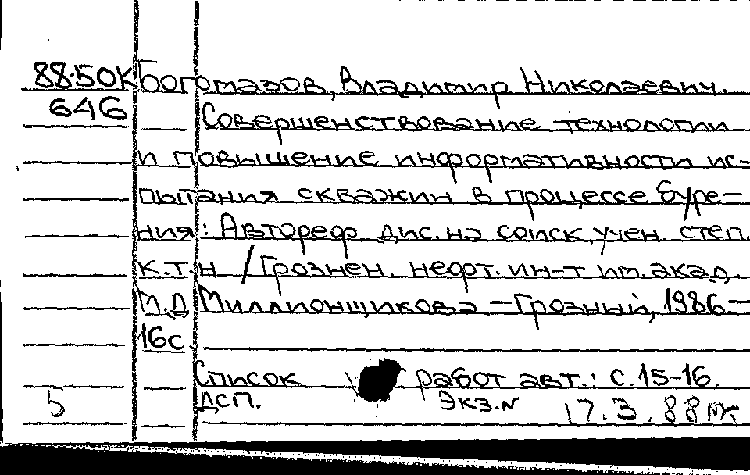 88-50К Богомазов, Владимир Николаевич.
646 Совершенствование технологии
и повышение информативности ис-
пытания скважин в процессе буре-
ния: Автореф. дис. на соиск. учен. степ.
к.т.н / Грознен. нефт. ин-т им. акад.
М.Д Миллионщикова – Грозный, 1986.–
16с
Список работ авт.: с.15-16.
5 ДСП. Экз.N 17.3.88